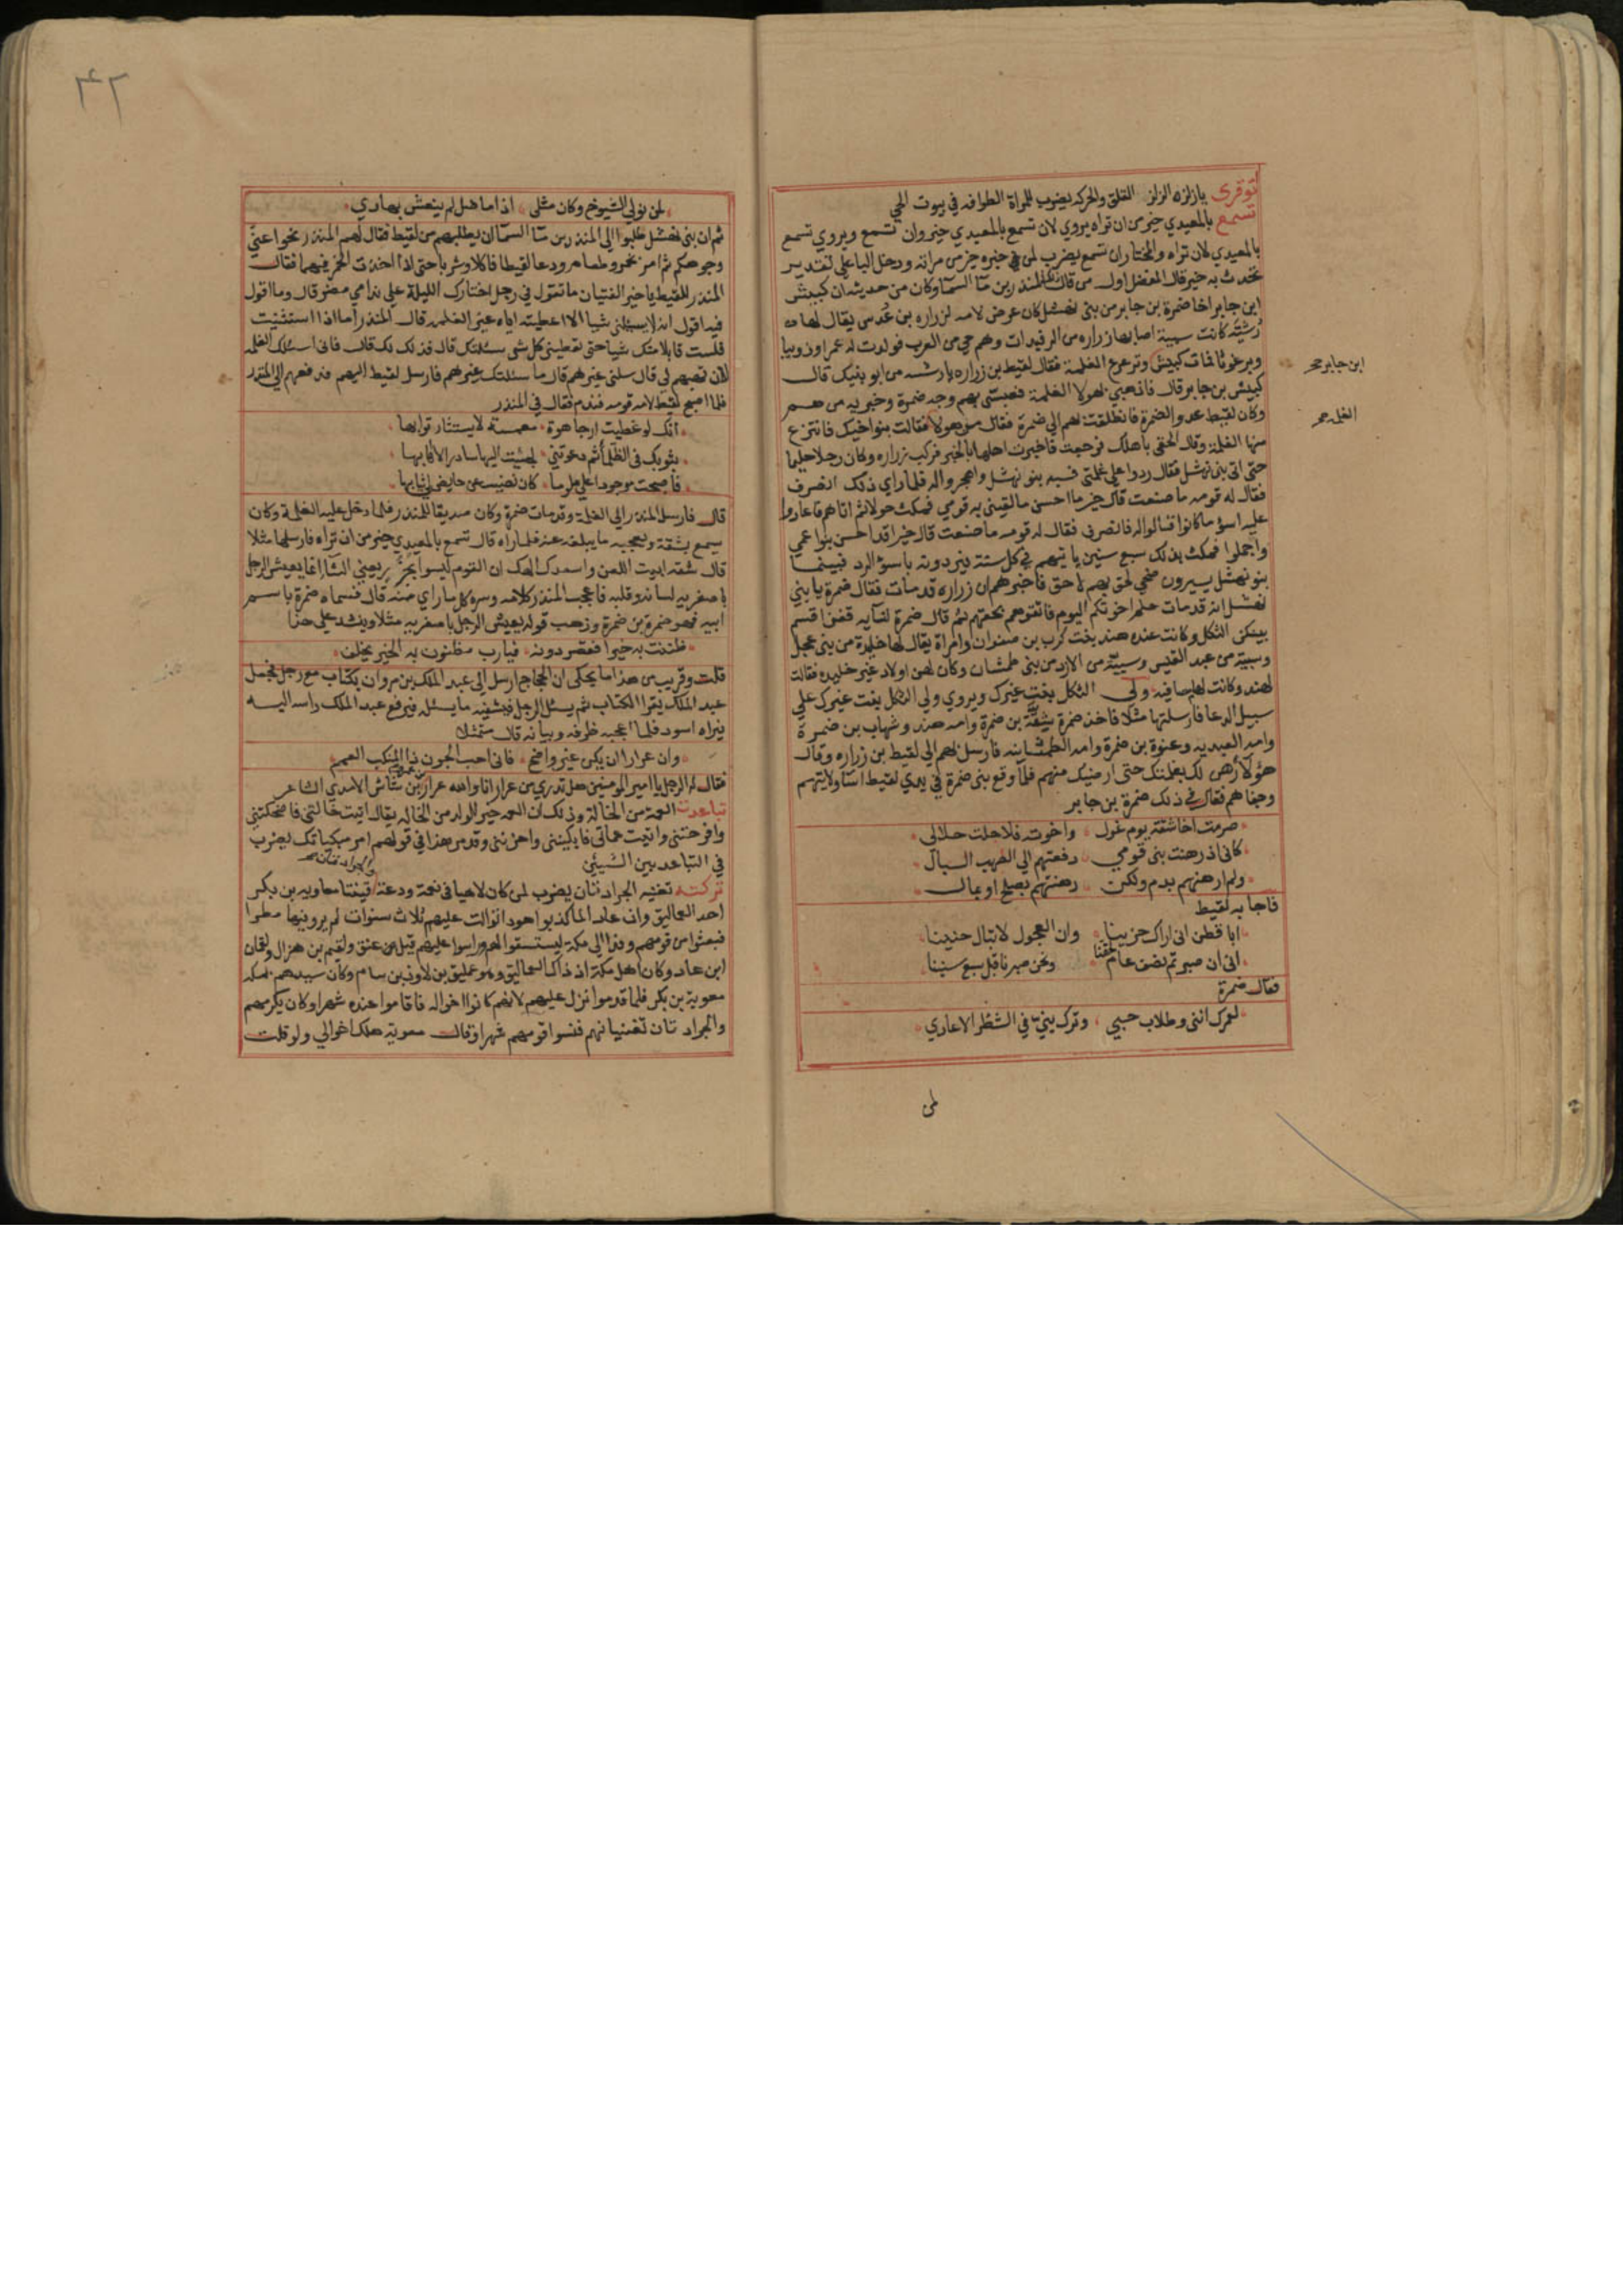 توقري يا زلزه الزلز القلق والحركه يضرب للمراة الطوافه في بيوت الحي
تسمع بالمعيدي خير من ان تراه يروي لان تسمع بالمعيدي خير وان تسمع ويروي تسمع
بالمعيدي لان تراه والمختار ان تسمع يضرب لمن خبره خير من مراته ودخل البا علي تقدير
تحدث به خير قال المفضل اول من قال ذلك المنذر بن ما السما وكان من حديثه ان كبيش
ابن جابر اخا ضمرة بن جابر من بني نهشل كان عرض لامه لزراره بن عُدس يقال لها
رُشيّه كانت سبية اصابها زراره من الرفيدات وهم حي من العرب فولدت له عمرا وذويبا
وبرغوثا فمات كبيش وترعرع الغلمة فقال لقيط بن زراره يا رشيه من ابو بنيك قالت
كبيش بن جابر قال فاذهبي بهولا الغلمة فعبسي بهم وجه ضمرة وخبريه من هم
وكان لقيط عدوا لضمرة فانطلقت بهم الي ضمرة فقال من هولا فقالت بنو اخيك فانتزع
منها الغلمة وقال الحقي باهلك فرجعت فاخبرت اهلها بالخبر فركب زراره وكان رجلا حليما
حتي اتي بني نهشل فقال ردوا علي غلمتي فسبه بنو نهشل واهجروا له فلما راي ذلك انصرف
فقال له قومه ما صنعت قال خير ما احسن ما لقيني به قومي فمكث حولا ثم اتاهم فاعادوا
عليه اسوء ما كانوا قالوا له فانصرف فقال له قومه ما صنعت قال خيرا قد احسن بنوا عمي
واجملوا فمكث بذلك سبع سنين ياتيهم في كل سنة فيردونه باسوء الرد فبينما
بنو نهشل يسيرون ضحي لحق بهم لاحق فاخبرهم ان زراره قد مات فقال ضمرة يا بني
نهشل انه قد مات حلم اخوتكم اليوم فاتقوهم بحقهم ثم قال ضمرة لنسايه قفن اقسم
بينكن الثكل وكانت عنده هند بنت كرب بن صفوان وامراة يقال لها خليدة من بني عجل
وسبية من عبد القيس وسبية من الازد من بني طمثان وكان لهن اولاد غير خليده فقالت
لهند وكانت لها مصافية ولي الثكل بنت غيرك ويروي ولي الثكل بنت غيرك علي
سبيل الدعا فارسلتها مثلا فاخذ ضمرة شقة بن ضمرة وامه هند وشهاب بن ضمرة
وامه العبدية وعنوة بن ضمرة وامه الطمثانيه فارسل بهم الي لقيط بن زراره وقال
هؤلا رهن لك بغلمتك حتي ارضيك منهم فلما وقع بني ضمرة في يدي لقيط اسا ولايتهم
وجفاهم فقال في ذلك ضمرة بن جابر
صرمت اخا شقة يوم غول واخوته فلا حلت حلالي
كاني اذ رهنت بني قومي دفعتهم الي الصهب السبال
ولم ارهنهم بدم ولكن رهنتهم بصلح او بمال
فاجابه لقيط
ابا قطن اني اراك حزينا وان العجول لا تبال حنينا
اني ان صبرتم نصف عام لحقنا ونحن صبرنا قبل سبع سنينا
فقال ضمرة
لعمرك انني وطلاب حبيي وترك بنيّ في الشطر الاعادي
لمن
ابن جابر صح
الغلمه صح
٣٢
لمن نولي الشيوخ وكان مثلي اذا ما ضل لم ينعش بهادي
ثم ان بني نهشل طلبوا الي المنذر بن ما السما ان يطلبهم من لقيط فقال لهم المنذر نحوا عني
وجوهكم ثم امر بخمر وطعام ودعا لقيطا فاكلا وشربا حتي اذا اخذت الخمر فيهما فقال
المنذر للقيط يا خير الفتيان ما تقول في رجل اختارك الليلة علي ندامي مضر قال وما اقول
فيه اقول انه لا يسئلني شيا الا اعطيته اياه غير الغلمه قال المنذر اما اذا استثنيت
فلست قابلا منك شيا حتي تعطيني كل شي سئلتك قال فذلك لك قال فاني اسئلك الغلمه
لان تهبهم لي قال سلني غيرهم قال ما سئلتك غيرهم فارسل لقيط اليهم فدفعهم الي المنذر
فلما اصبح لقيط لامه قومه فندم فقال في المنذر
انك لو غطيت ارجا هوة مغمسة لا يستثار ترابها
بثوبك في الظلما ثم دعوتني لجئت اليها سادرا لا اهابها
فاصبحت موجودا علي ملوما كان نضيت عن حايض لي ثيابها
قال فارسل المنذر الي الغلمة وقد مات ضمرة وكان صديقا للمنذر فلما دخل عليه الغلمة وكان
يسمع بشقة ويعجبه ما يبلغه عنه فلما راه قال تسمع بالمعيدي خير من ان تراه فارسلها مثلا
قال شقه ابيت اللعن واسعدك الهك ان القوم ليسوا بجزر يعني الشا انما يعيش الرجل
باصغريه لسانه وقلبه فاعجب المنذر كلامه وسره كل ما راي منه قال فسماه ضمرة باسم
ابيه فهو ضمرة بن ضمرة وذهب قوله يعيش الرجل باصغريه مثلا وينشد علي هذا
ظننت به خيرا فقصر دونه فيا رب مظنون به الخير يخلف
قلت وقريب من هذا ما يحكي ان الحجاج ارسل الي عبد الملك بن مروان بكتاب مع رجل فجعل
عبد الملك يقرا الكتاب ثم يسئل الرجل فيشفيه ما يسئله فيرفع عبد الملك راسه اليه
فيراه اسود فلما اعجبه ظرفه وبيانه قال متمثلا
وان عرارا ان يكن غير واضح فاني احب الجون ذا المنكب العمم
فقال له الرجل يا امير المومنين هل تدري من عرار انا والله عرار بن عمرو بن شاش الاسدي الشاعر
تباعدت العمة من الخالة وذلك ان العمه خير للولد من الخاله يقال اتيت خالتي فاضحكتني
وافرحتني واتيت عماتي فابكينني واحزنني وقد مر هذا في قولهم امر مبكياتك يضرب
في التباعد بين الشيئين
تركته تغنيه الجرادتان يضرب لمن كان لاهيا في نعمة ودعة والجرادتان قينتا معاويه بن بكر
احد العماليق وان عادا لما كذبوا هودا توالت عليهم ثلاث سنوات لم يروا فيها مطرا
فبعثوا من قومهم وفدا الي مكة ليستسقوا لهم وراسوا عليهم قيل بن عنق ولقيم بن هزال ولقمان
ابن عاد وكان اهل مكة اذ ذاك العماليق وهم عمليق بن لاوذ بن سام وكان سيدهم بمكه
معوية بن بكر فلما قدموا نزل عليهم لانهم كانوا اخواله فاقاموا عنده شهرا وكان يكرمهم
والجرادتان تغنيانهم فنسوا قومهم شهرا فقال معوية هلك اخوالي ولو قلت